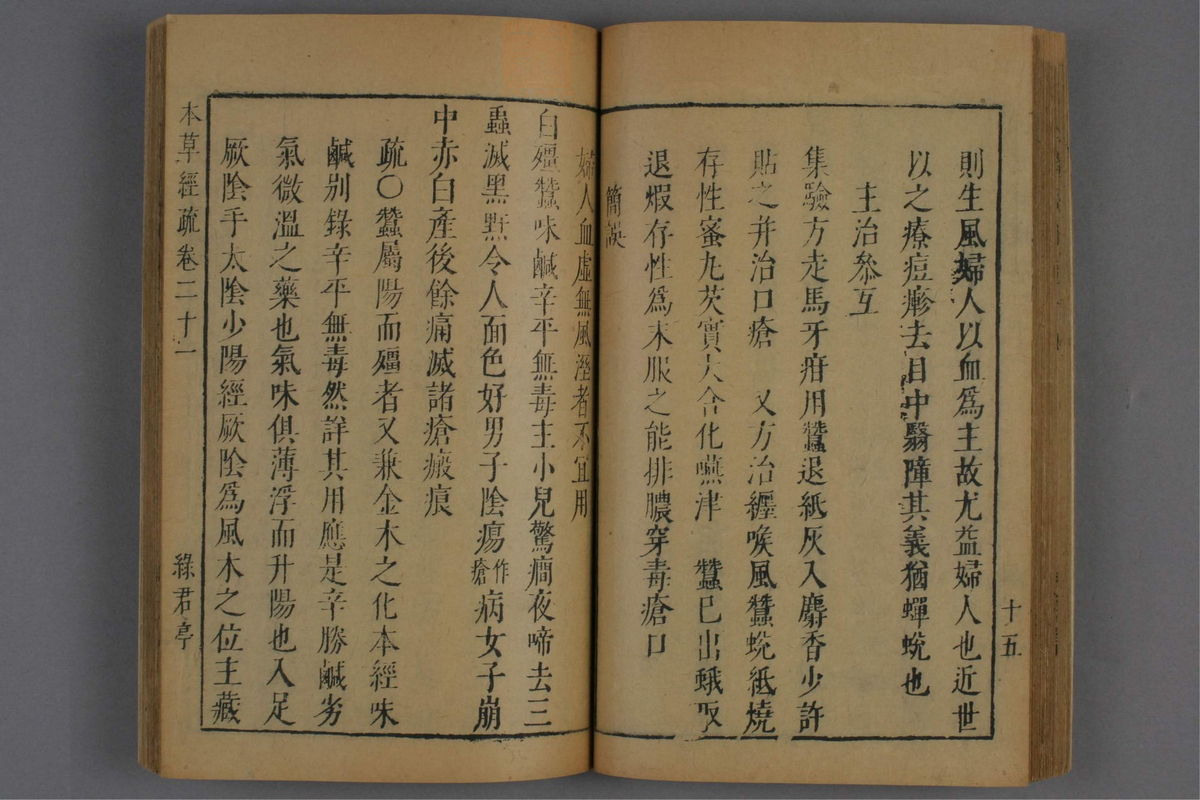 十五
則生風婦人以血爲主故尤益婦人也近世
以之療痘瘮去目中翳障其義猶蟬蛻也
主治參互
集驗方走馬牙疳用蠶退紙灰入麝香少許
貼之并治口瘡　又方治纏喉風蠶蛻紙燒
存性蜜丸芡實大含化嚥津　蠶已出蛾㕞
退煆存性爲末服之能排膿穿毒瘡口
簡誤
婦人血虛無風溼者不宜用
白殭蠶味鹹辛平無毒主小兒驚癎夜啼去三
蟲滅黑䵟令人面色好男子陰瘍作瘡病女子崩
中赤白產後餘痛滅諸瘡瘢痕
疏〇蠶屬陽而殭者又兼金木之化本經味
鹹别錄辛平無毒然詳其用應是辛勝鹹劣
氣微溫之藥也氣味俱薄浮而升陽也入足
厥陰手太陰少陽經厥陰爲風木之位主藏
本草經疏卷二十一
綠君亭